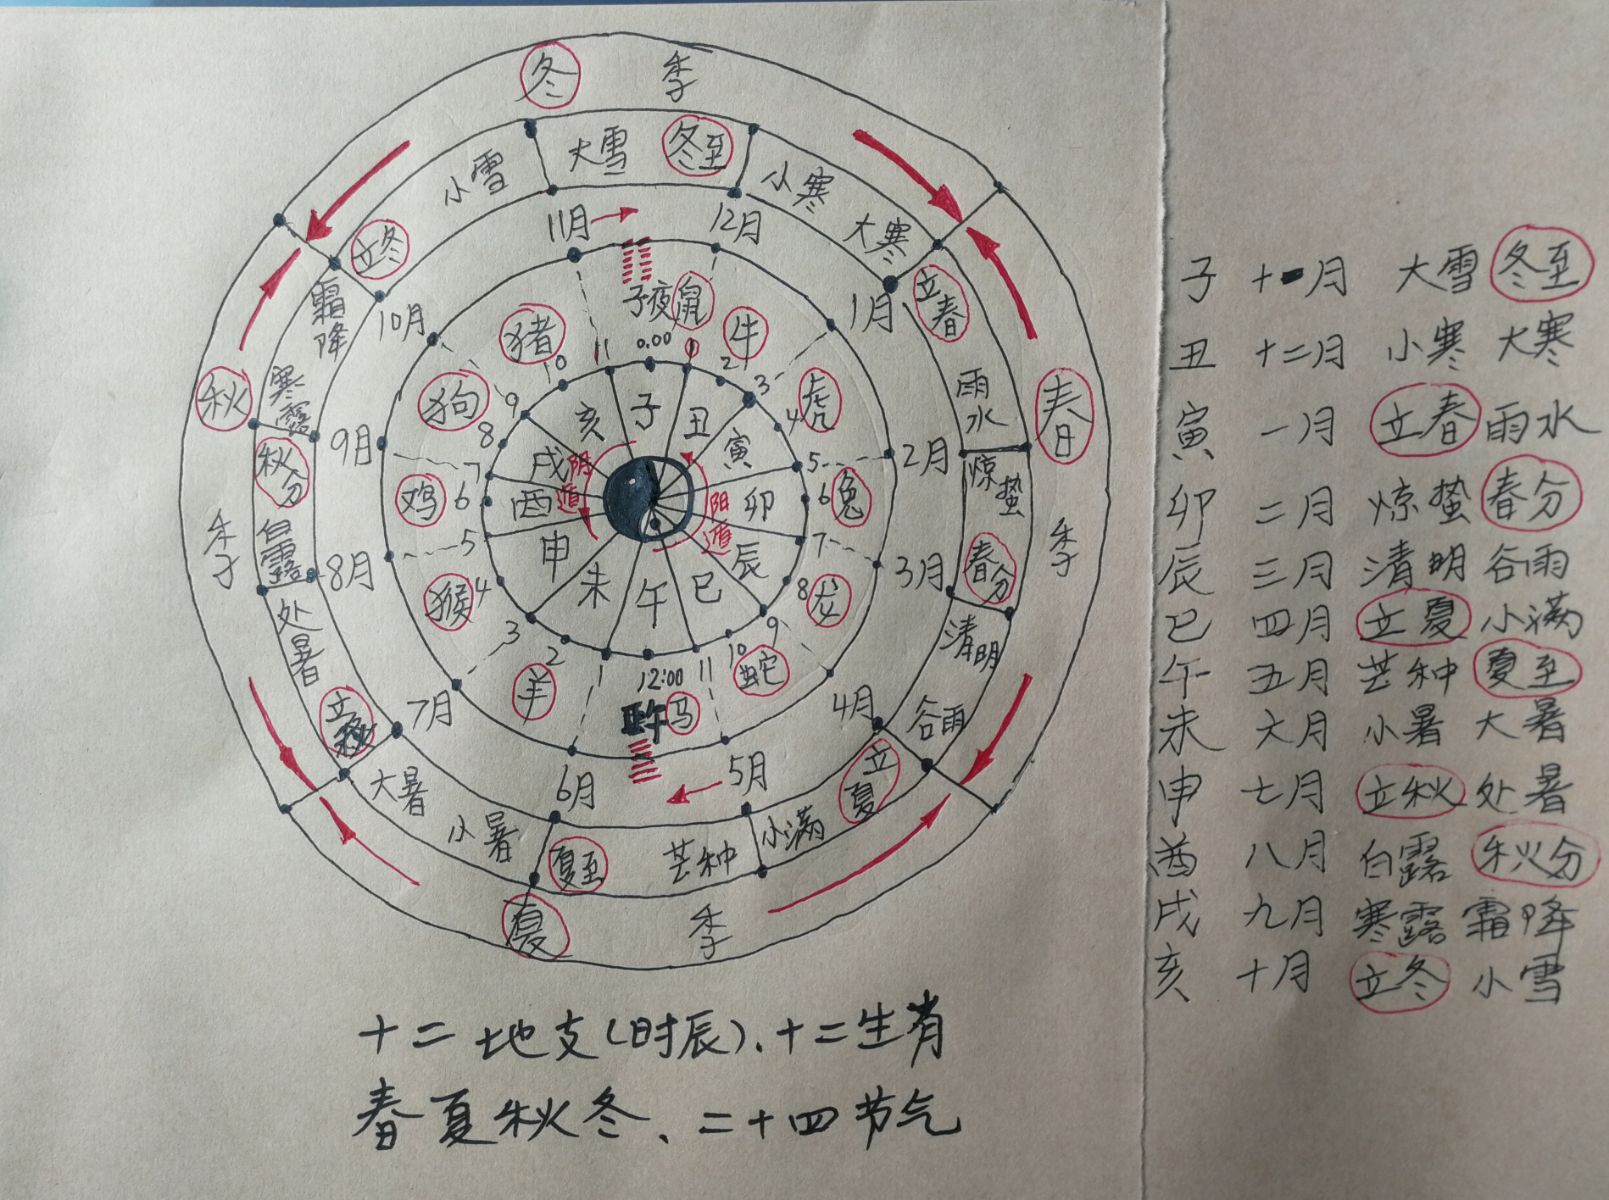 冬 季
春 季
夏 季
秋 季
大雪 冬至
小寒 大寒
立春 雨水
惊蛰 春分
清明 谷雨
立夏 小满
芒种 夏至
小暑 大暑
立秋 处暑
白露 秋分
寒露 霜降
立冬 小雪
11月 12月 1月 2月 3月 4月 5月 6月 7月 8月 9月 10月
子夜鼠 牛 虎 兔 龙 蛇 马 羊 猴 鸡 狗 猪
0.00 1 2 3 4 5 6 7 8 9 10 11 12:00 1 2 3 4 5 6 7 8 9 10 11
子 丑 寅 卯 辰 巳 午 未 申 酉 戌 亥
阳遁
阴遁
子 十一月 大雪 冬至
丑 十二月 小寒 大寒
寅 一月 立春 雨水
卯 二月 惊蛰 春分
辰 三月 清明 谷雨
巳 四月 立夏 小满
午 五月 芒种 夏至
未 六月 小暑 大暑
申 七月 立秋 处暑
酉 八月 白露 秋分
戌 九月 寒露 霜降
亥 十月 立冬 小雪
十二地支(时辰)、十二生肖
春夏秋冬、二十四节气